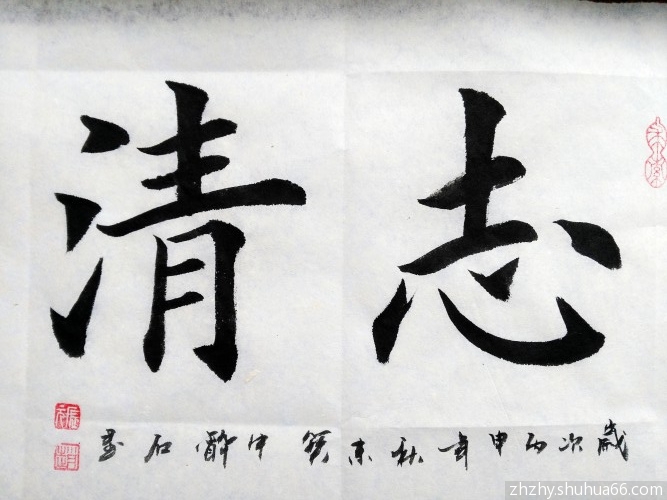 志清
歲次丙申年秋末 中醉石書
zhzhy.shuhua66.com